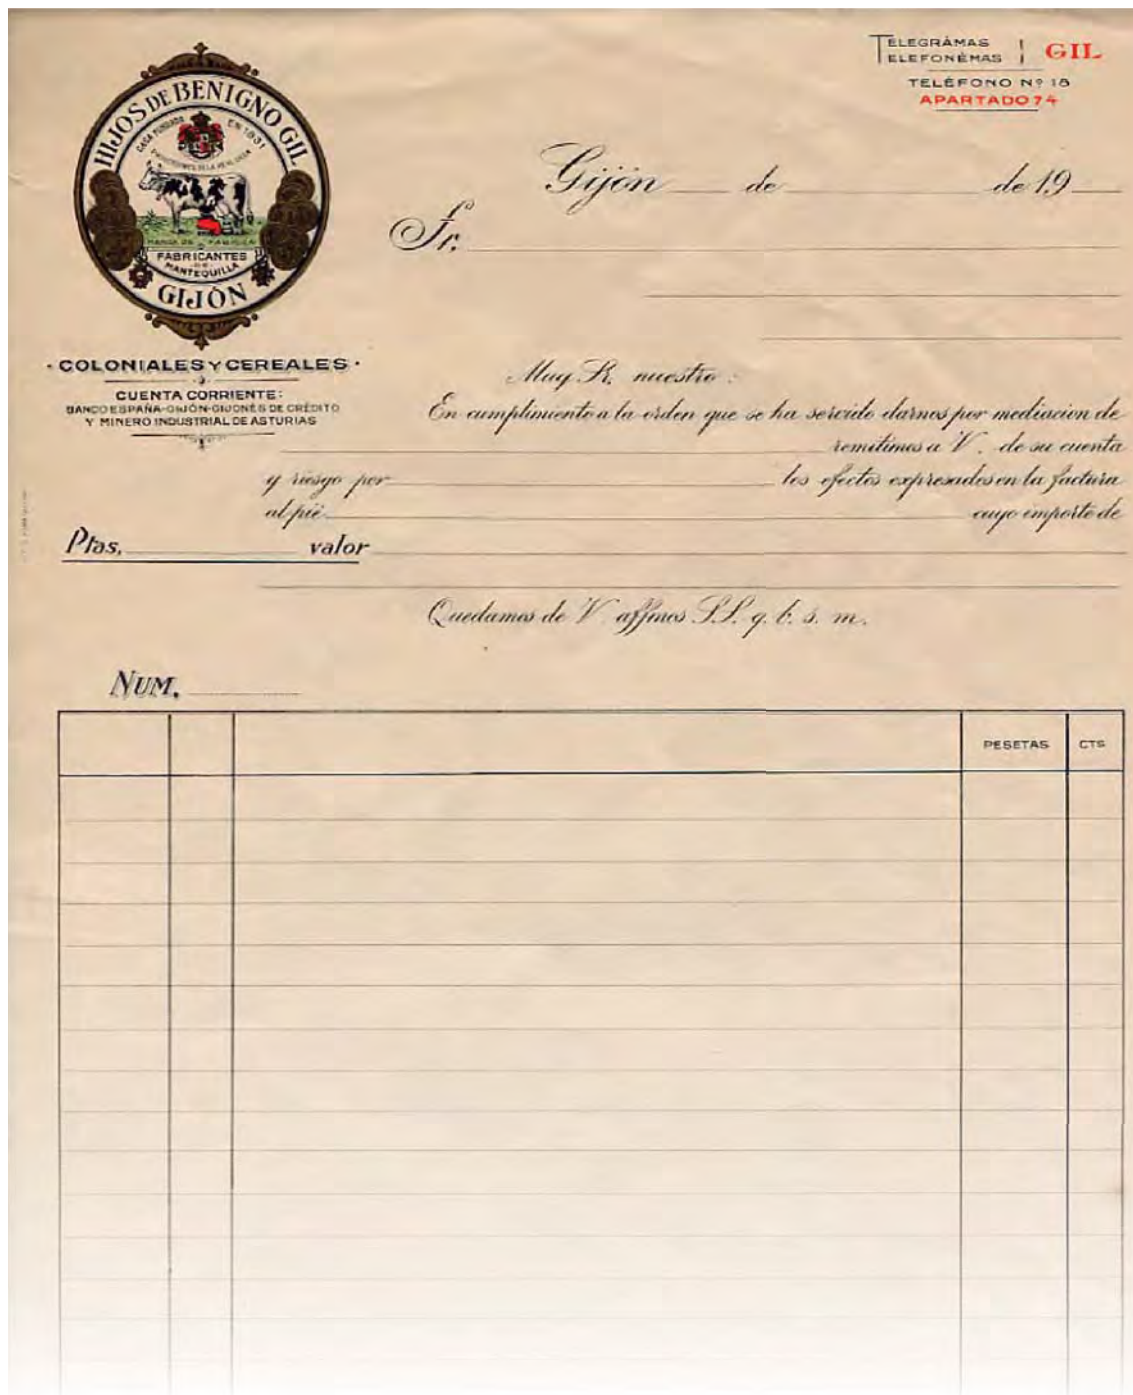 TELEGRÁMAS
TELEFONÉMAS
GIL
TELÉFONO Nº 18
APARTADO 74
HIJOS DE BENIGNO GIL
CASA FUNDADA EN 1831
PROVEEDORES DE LA REAL CASA
MARCA DE FABRICA
FABRICANTES
DE
MANTEQUILLA
GIJÓN
· COLONIALES Y CEREALES ·
CUENTA CORRIENTE:
BANCO ESPAÑA-GIJÓN-GIJONÉS DE CRÉDITO
Y MINERO INDUSTRIAL DE ASTURIAS
Gijón de de 19
Sr.
Muy Sr. nuestro:
En cumplimiento a la orden que se ha servido darnos por mediacion de
remitimos a V. de su cuenta
y riesgo por los efectos expresados en la factura
al pié cuyo importe de
Ptas. valor
Quedamos de V. affmos S.S. q. b. s. m.
NUM.
PESETAS CTS